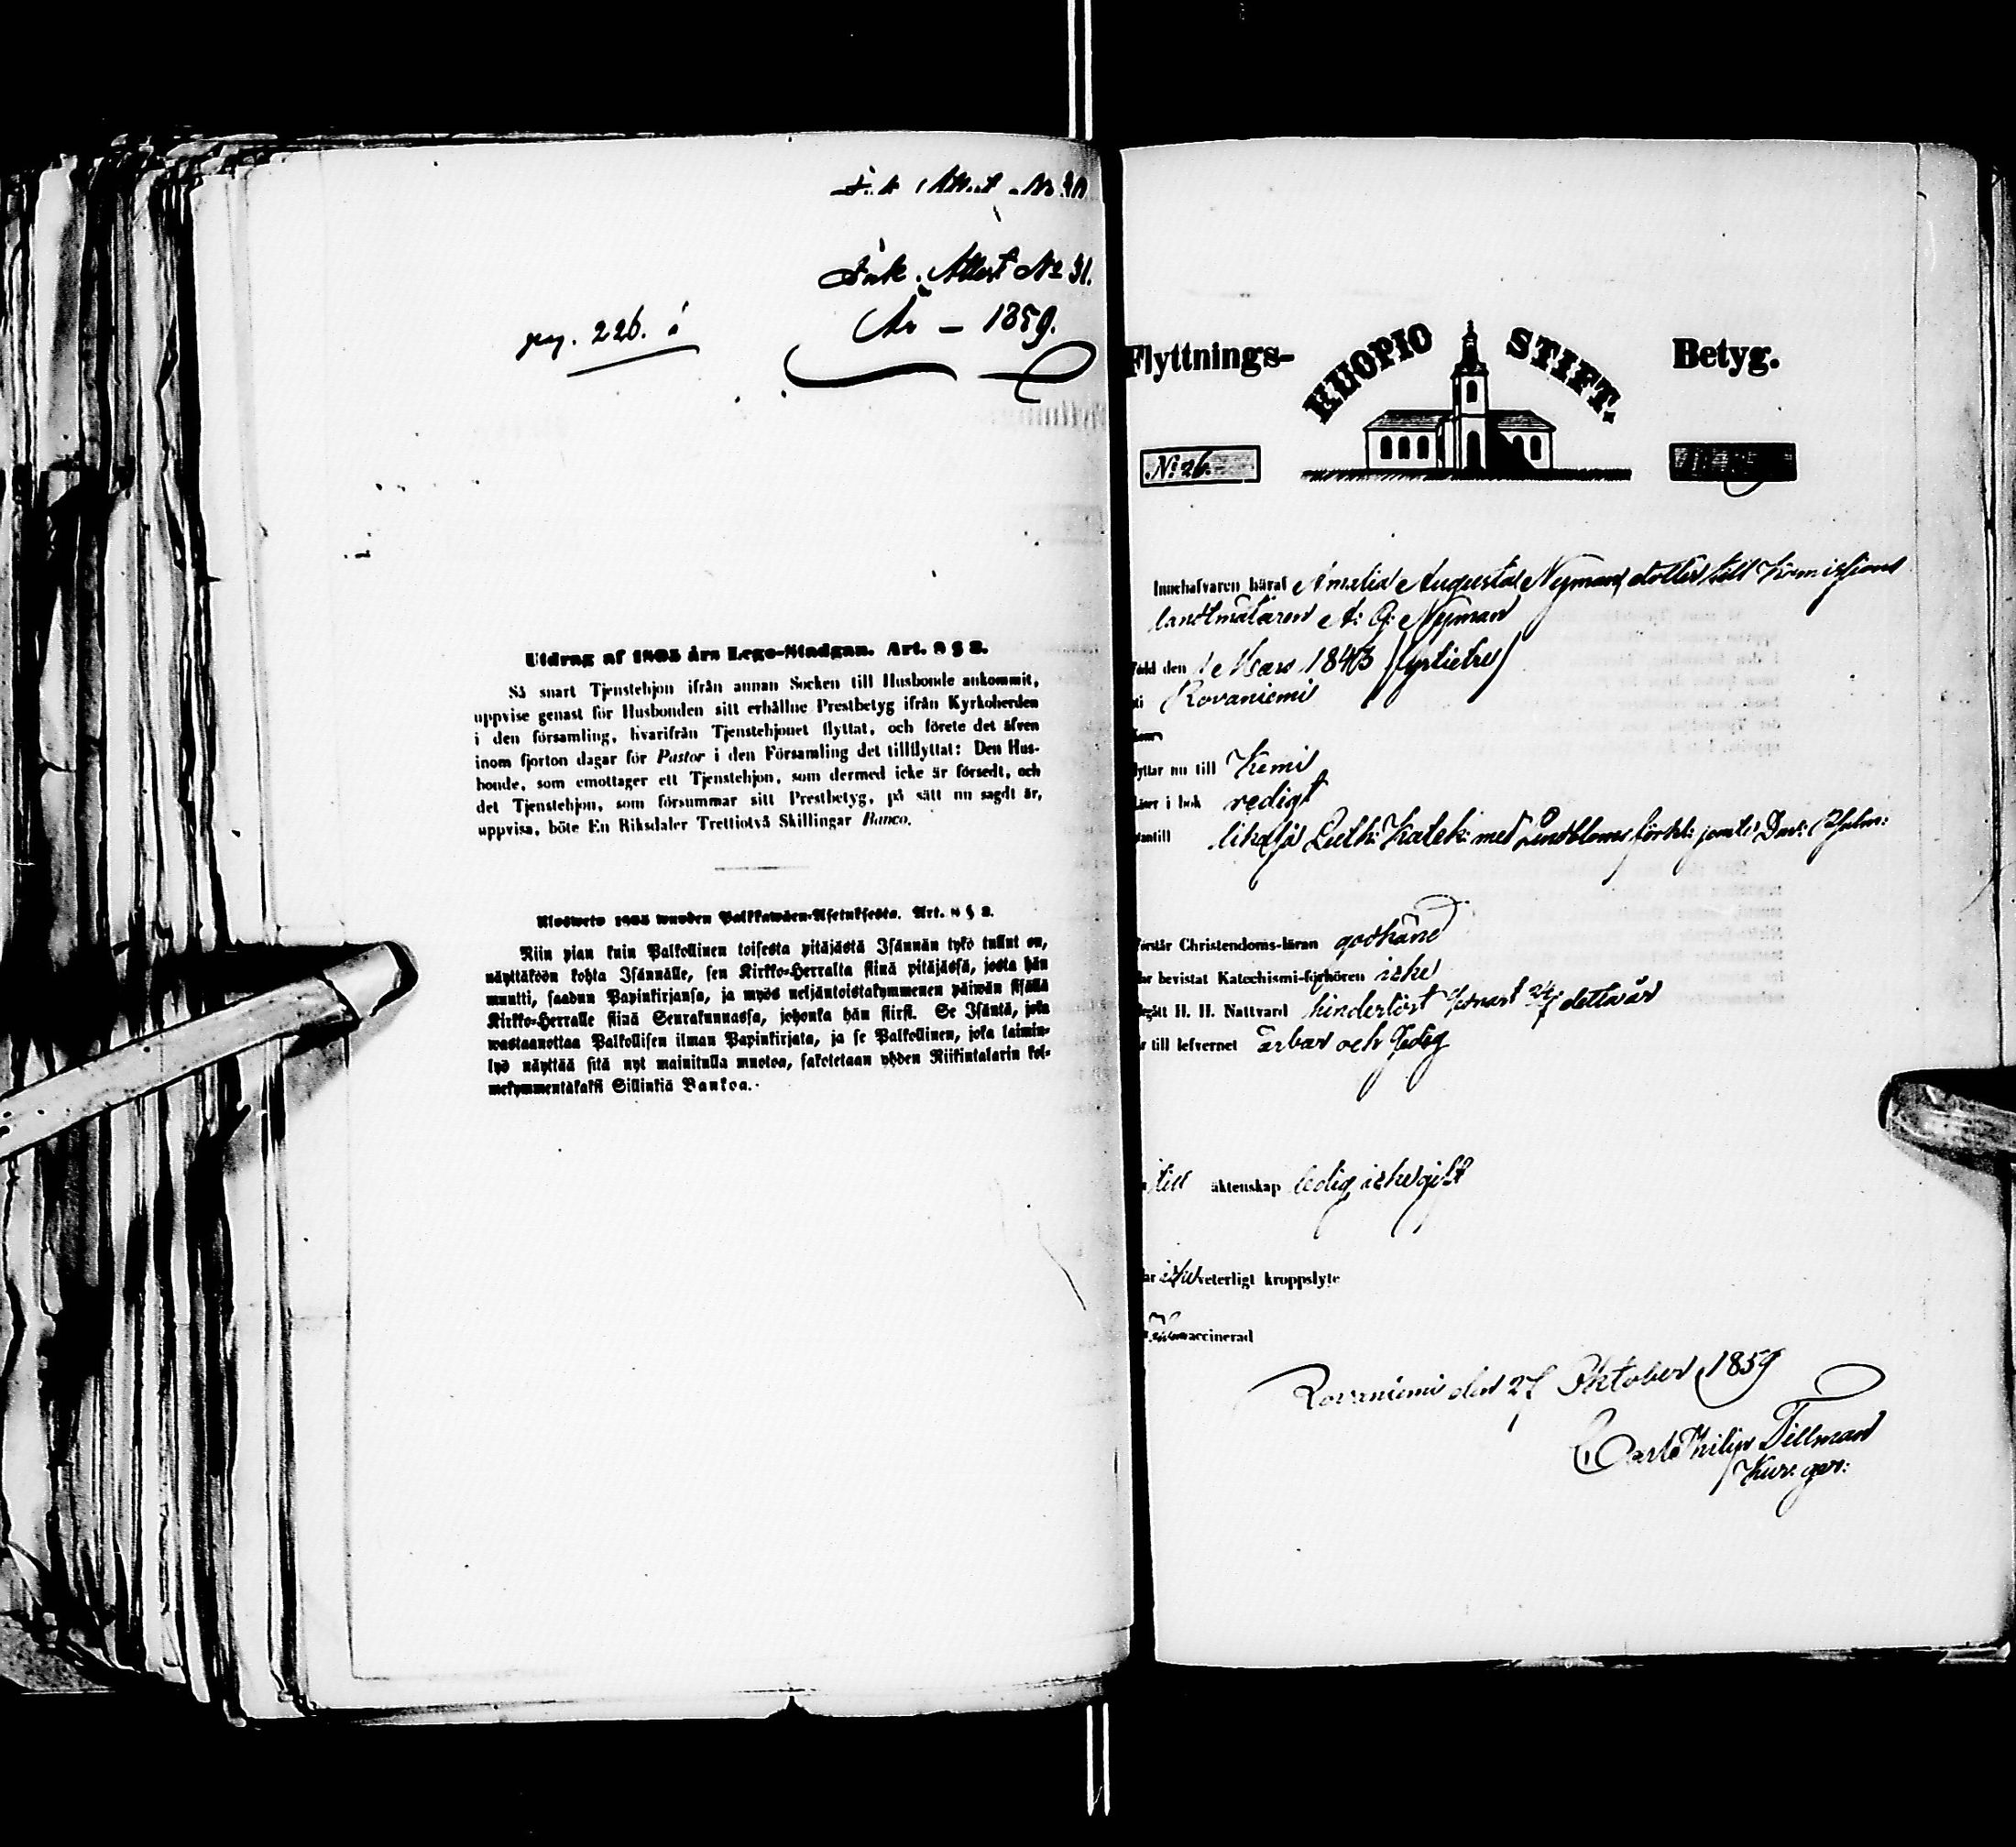 Ink. Attest No 31.
År – 1859.
pag. 226.
Utdrag af 1805 års Lego-Stadgan. Art. 8 § 2.
Så snart Tjenstehjon ifrån annan Socken till Husbonde ankommit,
uppvise genast för Husbonden sitt erhållne Prestbetyg ifrån Kyrkoherden
i den församling, hvarifrån Tjenstehjonet flyttat, och förete det äfven
inom fjorton dagar för Pastor i den Församling det tillflyttat: Den Hus-
bonde, som emottager ett Tjenstehjon, som dermed icke är försedt, och
det Tjenstehjon, som försummar sitt Prestbetyg, på sätt nu sagdt är,
uppvisa, böte En Riksdaler Trettiotvå Skillingar Banco.
Ulosweto 1805 wuoden Palkkawäen-Asetuksesta. Art. 8 § 2.
Niin pian kuin Palkollinen toisesta pitäjästä Isännän tykö tullut on,
näyttäköön kohta Isännälle, sen Kirkko-Herralta siinä pitäjässä, josta hän
muutti, saadun Papinkirjansa, ja myös neljäntoistakymmenen päiwän sisällä
Kirkko-Herralle siinä Seurakunnassa, johonka hän siirsi. Se Isäntä, joka
wastaanottaa Palkollisen ilman Papinkirjata, ja se Palkollinen, joka laimin-
lyö näyttää sitä nyt mainitulla muotoa, sakotetaan yhden Riikintalarin kol-
mekymmentäkaksi Sillinkiä Bankoa.
Flyttnings- KUOPIO STIFT. Betyg.
N: 26.
Innehafvaren häraf Amalia Augusta Nyman, dotter till Komissions
landtmätaren A: G: Nyman
född den 1 e Mars 1843 (fyrtietre)
i Rovaniemi
flyttar nu till Kemi
Läser i bok redigt
utantill likaså Luth: Katek: med Lindbloms förkl: jemte Dav: Psalm:
förstår Christendoms-läran godkänd
har bevistat Katechismi-förhören icke
begått H. H. Nattvard hinderlöst senast 24/7 detta år
är till lefvernet ärbar och sedig
till äktenskap ledig icke gift
veterligt kroppslyte
vaccinerad
Rovaniemi den 27 Oktober 1859
Carl Philip Tillman